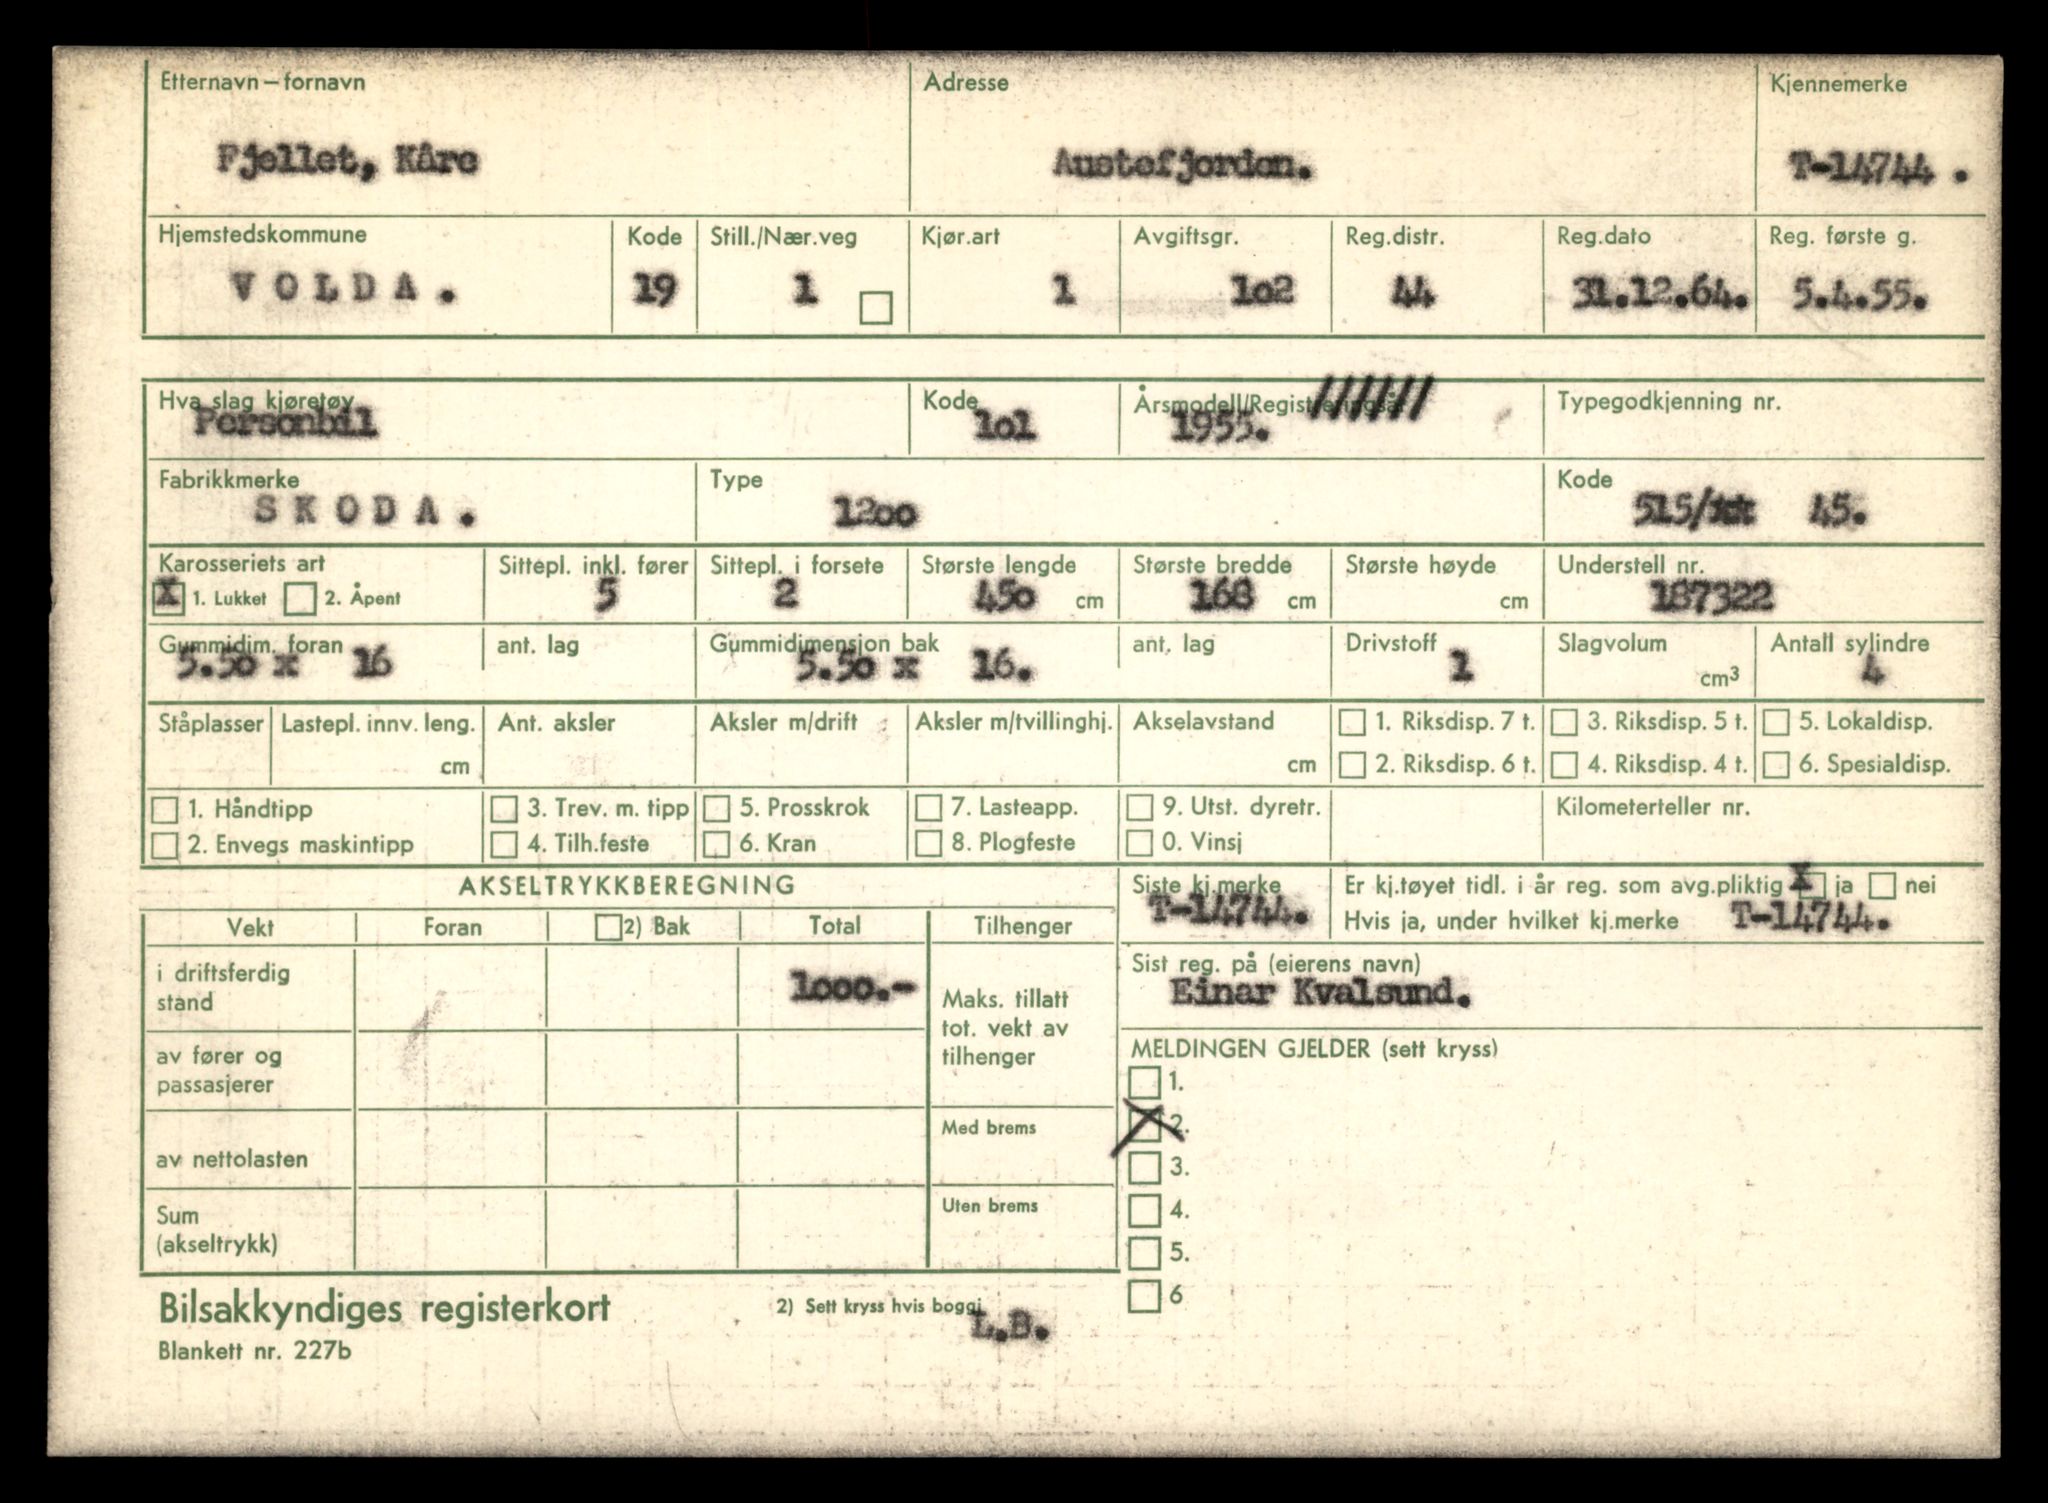 Etternavn – fornavn Adresse Kjennemerke
Fjellet, Kåre Austefjorden. T-14744 .
Hjemstedskommune Kode Still./Nær.veg Kjør.art Avgiftsgr. Reg.distr. Reg.dato Reg. første g.
VOLDA. 19 1 1 1o2 44 31.12.64. 5.4.55.
Hva slag kjøretøy Kode Årsmodell/Registreringsår Typegodkjenning nr.
Personbil 1o1 1955. //////
Fabrikkmerke Type Kode
SKODA. 12oo 515/ 45.
Karosseriets art Sittepl. inkl. fører Sittepl. i forsete Største lengde Største bredde Største høyde Understell nr.
X 1. Lukket 2. Åpent 5 2 45o cm 168 cm cm 187322
Gummidim. foran ant. lag Gummidimensjon bak ant. lag Drivstoff Slagvolum Antall sylindre
5.5o x 16 5.5o x 16. 1 cm³ 4
Ståplasser Lastepl. innv. leng. Ant. aksler Aksler m/drift Aksler m/tvillinghj. Akselavstand 1. Riksdisp. 7 t. 3. Riksdisp. 5 t. 5. Lokaldisp.
cm cm 2. Riksdisp. 6 t. 4. Riksdisp. 4 t. 6. Spesialdisp.
1. Håndtipp 3. Trev. m. tipp 5. Prosskrok 7. Lasteapp. 9. Utst. dyretr. Kilometerteller nr.
2. Envegs maskintipp 4. Tilh.feste 6. Kran 8. Plogfeste 0. Vinsj
AKSELTRYKKBEREGNING Siste kj.merke Er kj.tøyet tidl. i år reg. som avg.pliktig X ja nei
T-14744. Hvis ja, under hvilket kj.merke T-14744.
Vekt Foran 2) Bak Total Tilhenger
Sist reg. på (eierens navn)
Einar Kvalsund.
i driftsferdig
stand 1ooo.-
Maks. tillatt
tot. vekt av
tilhenger
av fører og
passasjerer
MELDINGEN GJELDER (sett kryss)
1.
X 2.
3.
4.
5.
6
Med brems
av nettolasten
Uten brems
Sum
(akseltrykk)
Bilsakkyndiges registerkort 2) Sett kryss hvis boggi
L.B.
Blankett nr. 227b